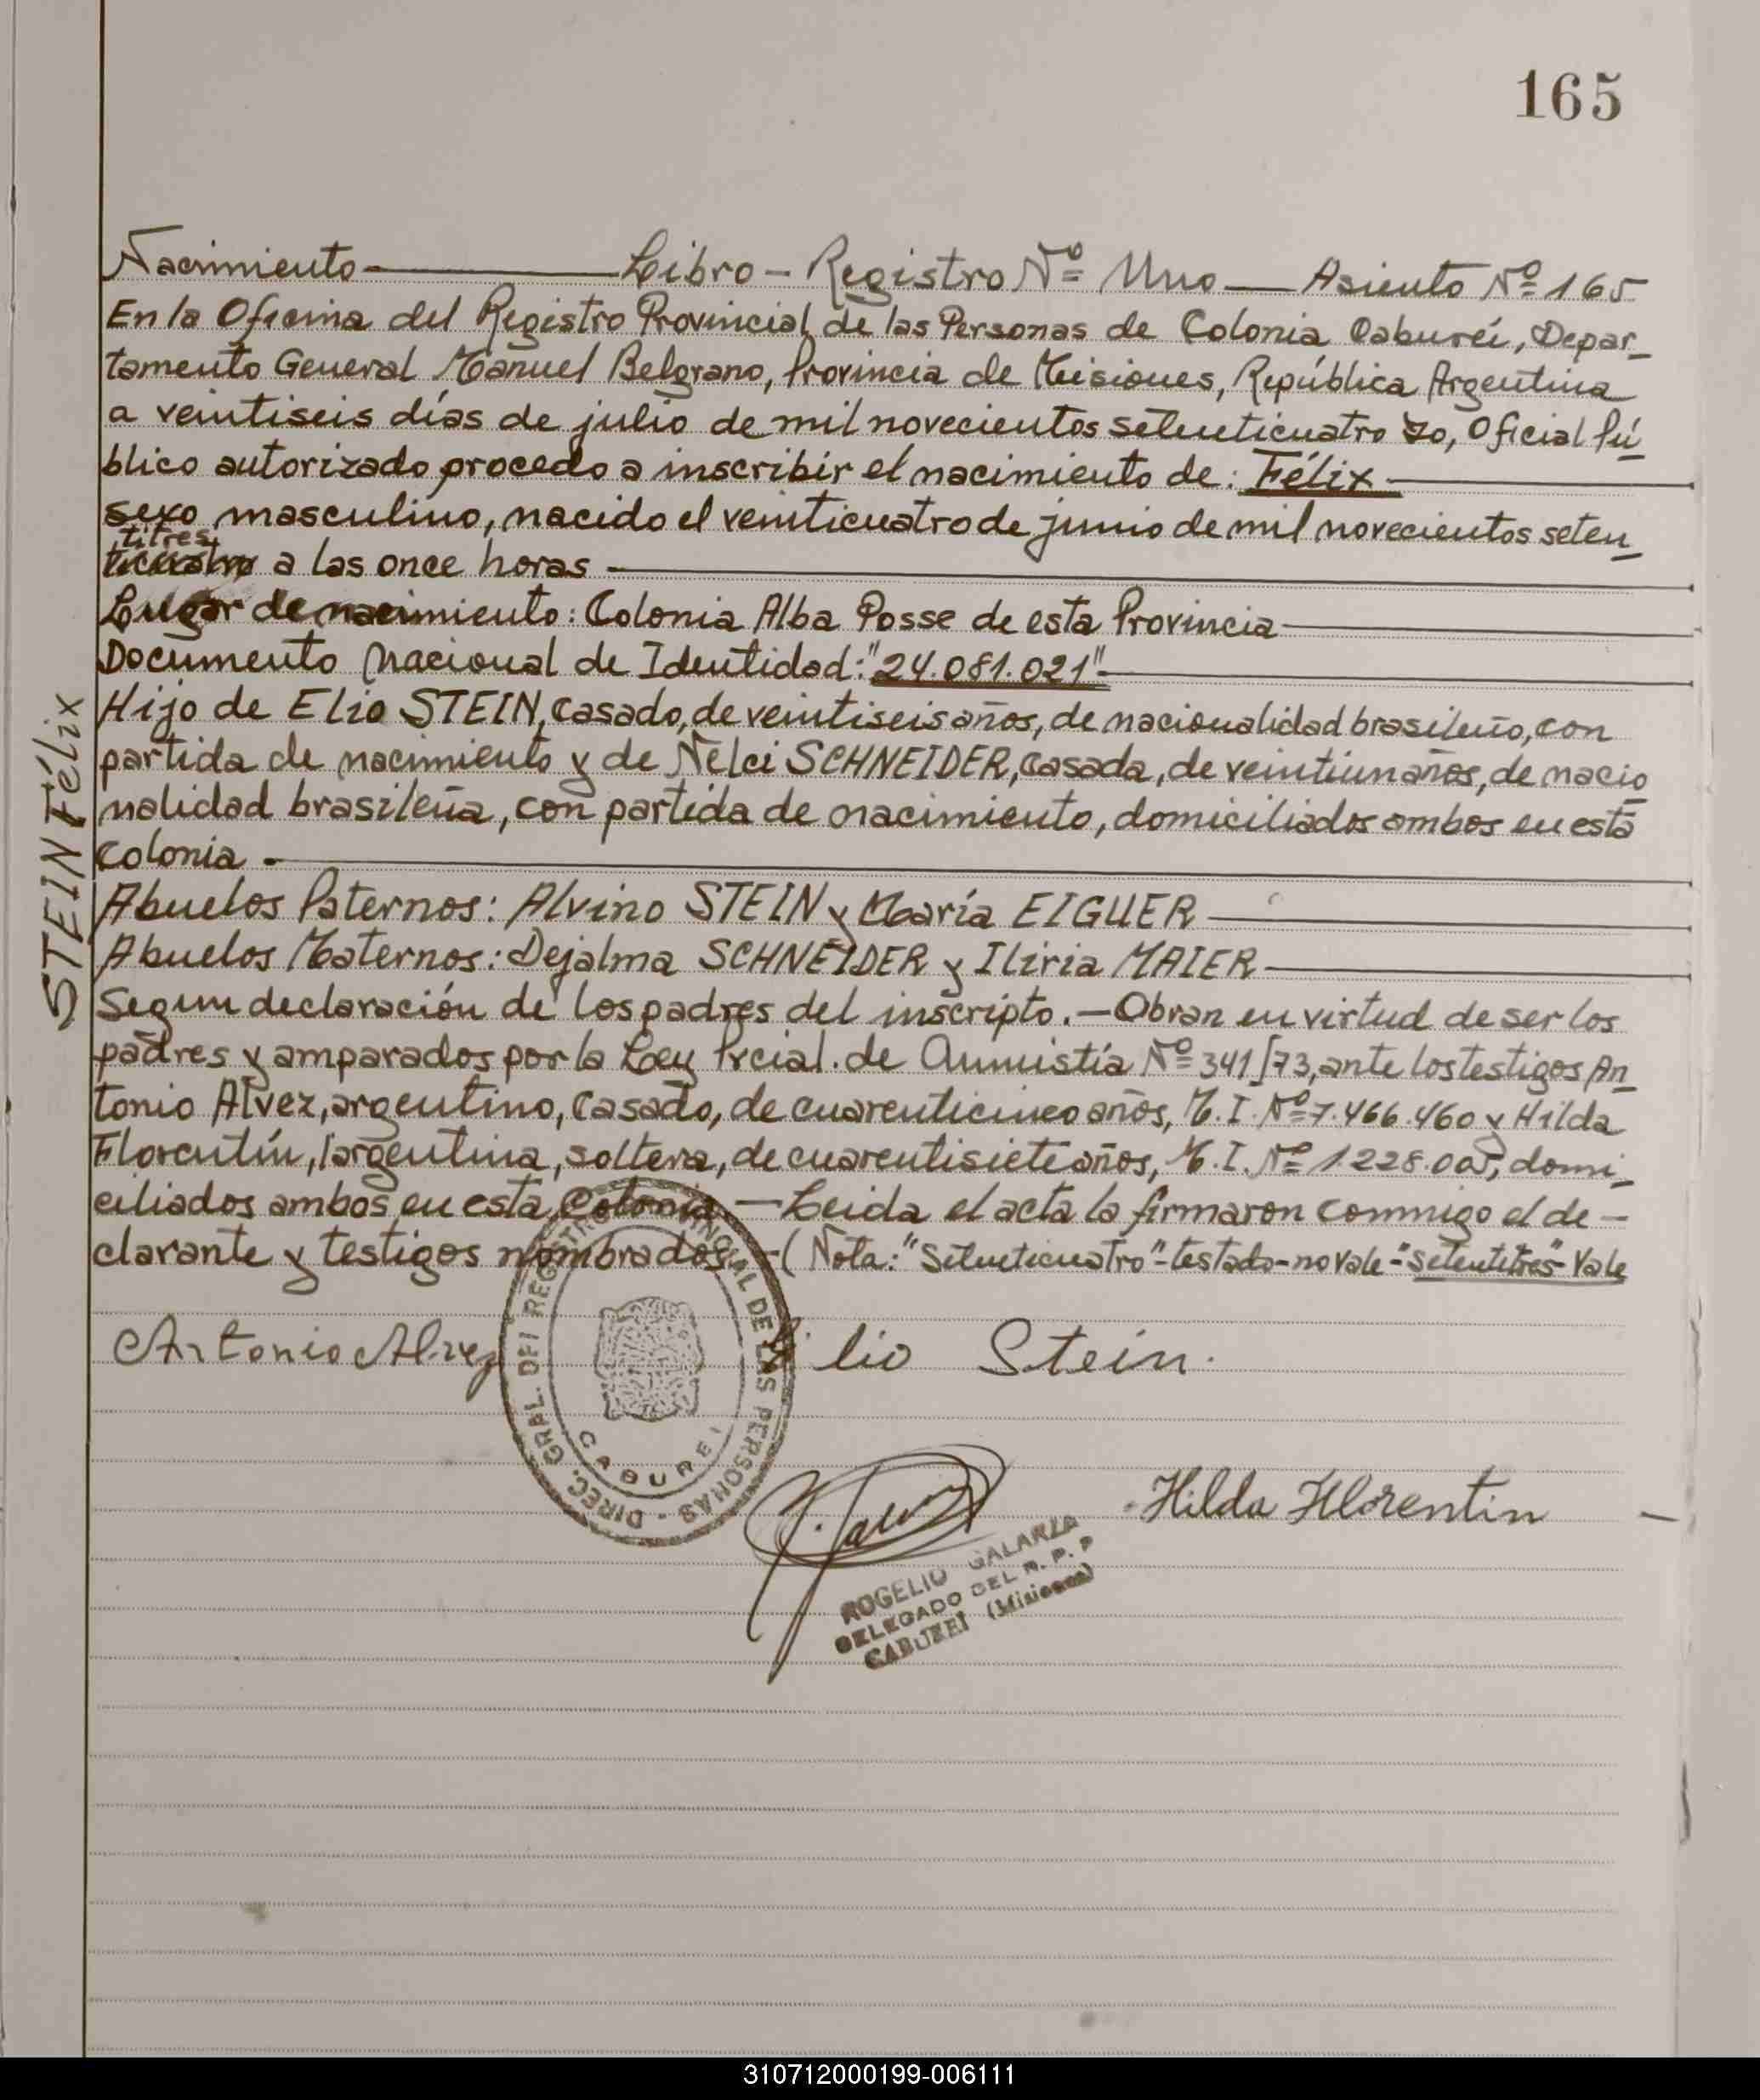 165
Nacimiento - Libro - Registro Nº Uno - Asiento Nº 165
En la Oficina del Registro Provincial de las Personas de Colonia Caburei, Depar_
tamento General Manuel Belgrano, Provincia de Misiones, República Argentina
a veintiseis días de julio de mil novecientos setenticuatro Yo, Oficial Pú
blico autorizado procedo a inscribir el nacimiento de: Félix
sexo masculino, nacido el veinticuatro de junio de mil novecientos seten_
titres
ticuatro a las once horas
Lugar de nacimiento: Colonia Alba Posse de esta Provincia
Documento Nacional de Identidad: "24.081.021"
Hijo de Elio STEIN, casado, de veintiseis años, de nacionalidad brasileño, con
partida de nacimiento y de Nelci SCHNEIDER, casada, de veintiun años, de nacio
nalidad brasileña, con partida de nacimiento, domiciliados ambos en esta
colonia.-
STEIN Félix
Abuelos Paternos: Alvino STEIN y María EIGUER
Abuelos Maternos: Dejalma SCHNEIDER y Iliria MAIER
Segun declaración de los padres del inscripto.- Obran en virtud de ser los
padres y amparados por la Ley Prcial. de Amnistía Nº 341/73, ante los testigos An_
tonio Alvez, argentino, casado, de cuarenticinco años, M.I. Nº 7.466.460 y Hilda
Florentín, argentina, soltera, de cuarentisiete años, M.I. Nº 1.228.005, domi_
ciliados ambos en esta Colonia.- Leida el acta la firmaron conmigo el de-
clarante y testigos nombrados.- (Nota: "Setenticuatro"- testado- no vale- "setentitres" Vale
Antonio Alvez
Elio Stein.
DIREC. GRAL. DEL REGISTRO PROVINCIAL DE LAS PERSONAS -
CABUREI
Hilda Florentin
ROGELIO GALARZA
DELEGADO DEL R. P. P
CABUREI (Misiones)
310712000199-006111